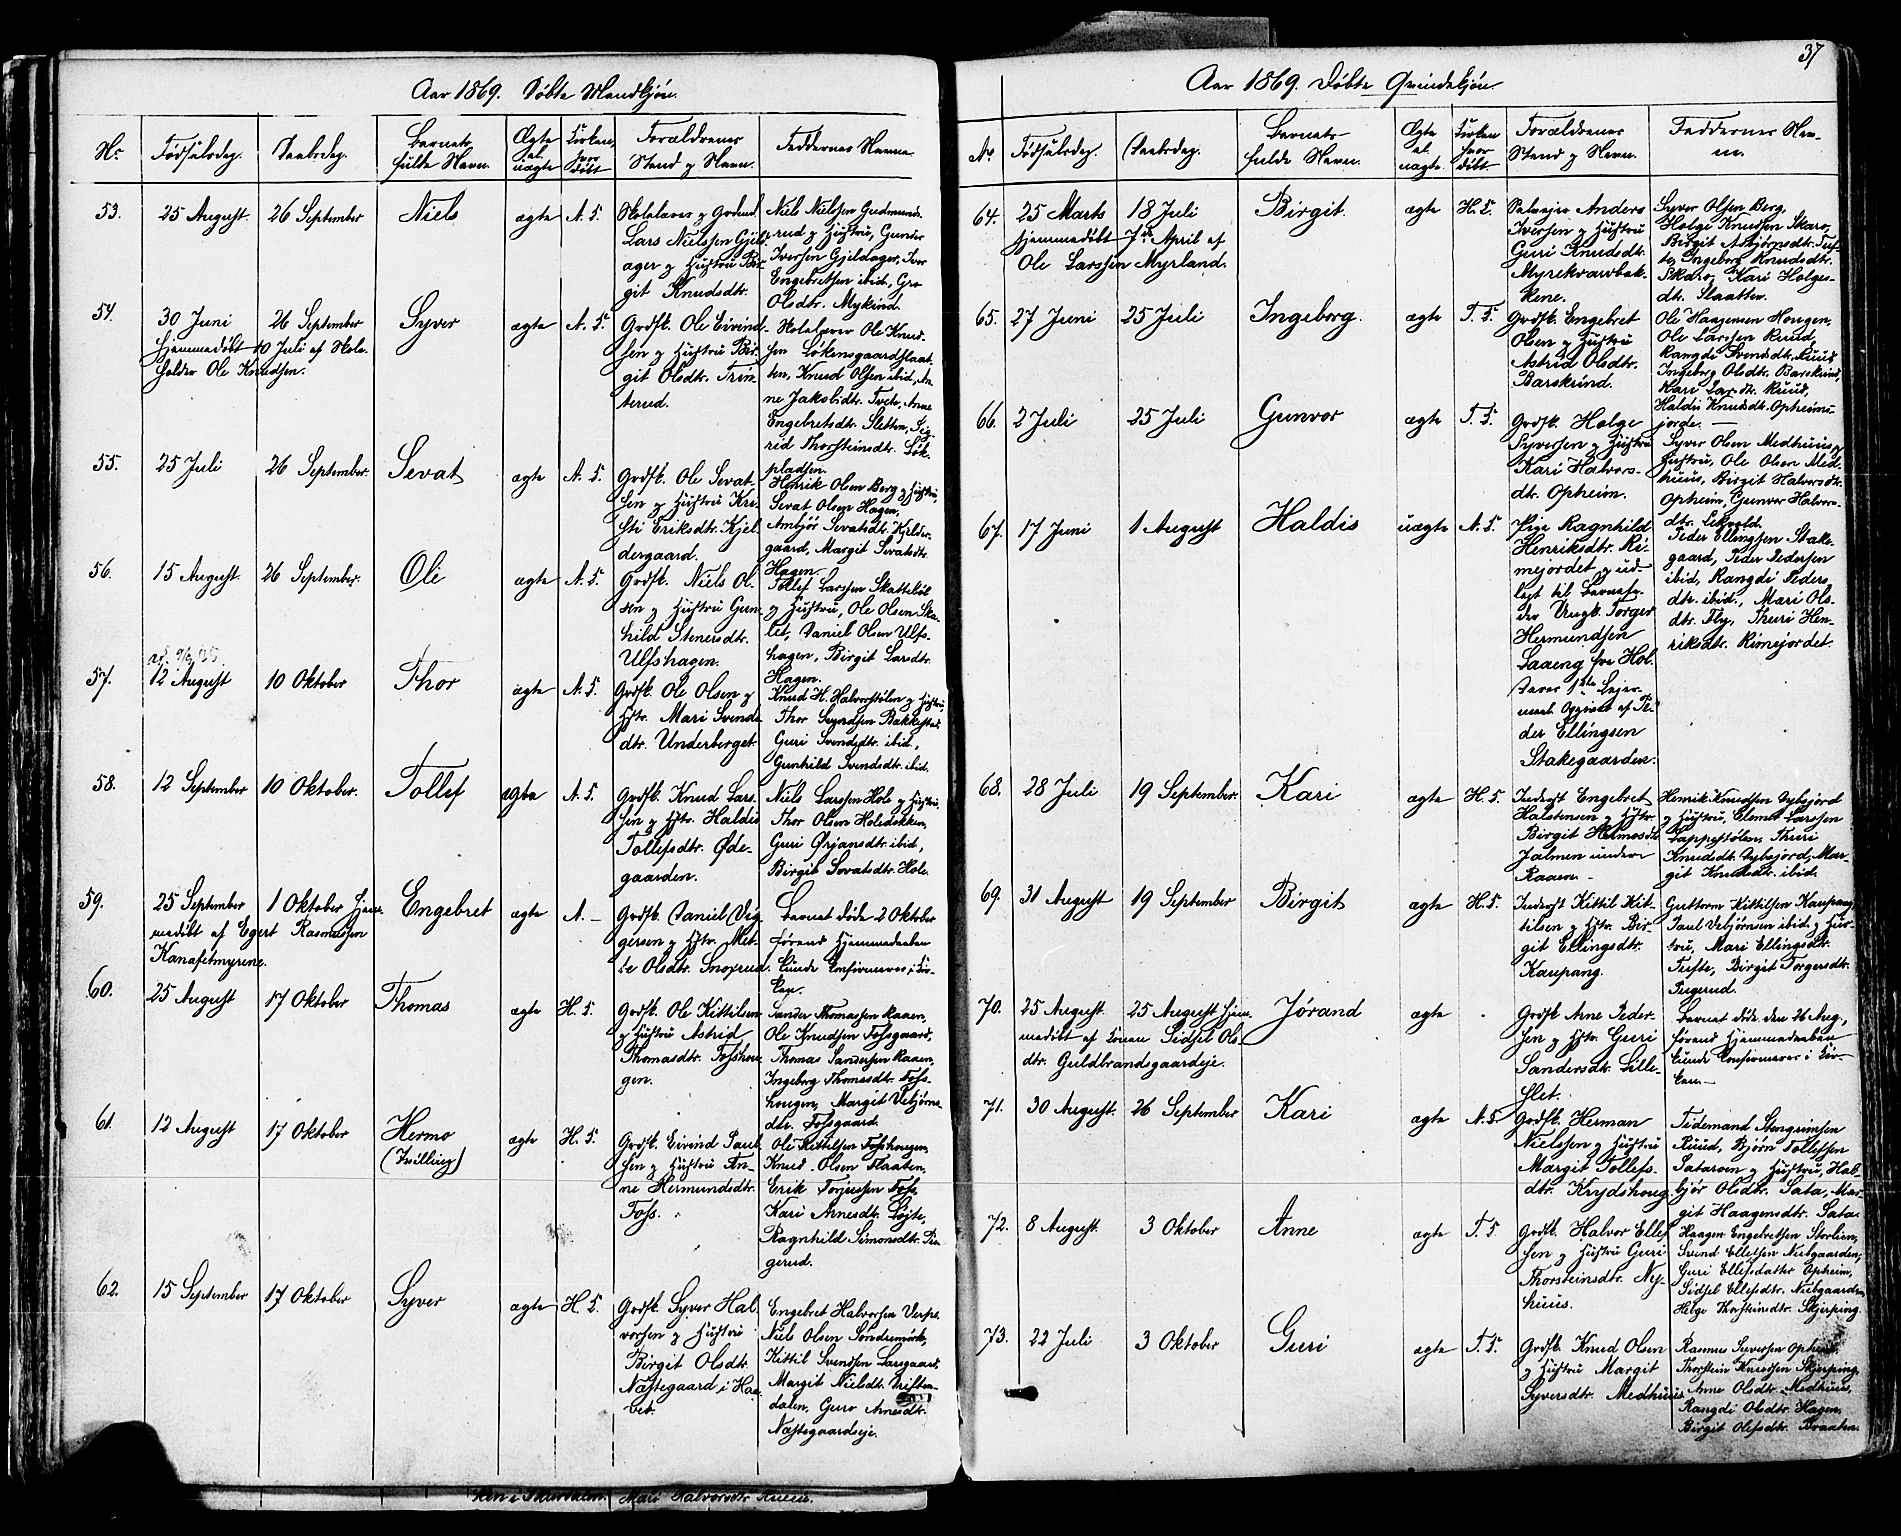 Aar 1869. Døbte Mandkjøn.
Nr. Fødselsdag. Daabsdag. Barnets fulde Navn. Ægte el. uægte Kirken, hvor døbt Forældrenes Stand og Navn. Faddernes Navne.
53. 25 August. 26 September Niels ægte A. K.
Lars Nielsen
ager og Hustru Bir-
git Knudsdtr.
Niels Nielssen Gudmunds-
rud og Hustru, Gunder
Iversen Gjeldager, Iver
Engebretsen ibid, Gro
Olsdtr. Mykind.
54. 30 Juni 26 September Syver ægte A. K.
Hjemmedøbt 10 Juli af Skole-
holder Ole Knudsen.
Grdsk. Ole Eivind-
sen og Hustru Bir-
git Olsdtr. Trin-
terud.
Skolelærer Ole Knud-
sen Løkensgaardslaat-
ten, Knud Olsen ibid, An-
ne Jakobsdtr. Tveto, Anne
Engebretsdtr. Sletten, Sig-
rid Thorsteinsdtr. Løk-
pladsen.
55. 25 Juli 26 September. Sevat ægte A. K.
Grdsk. Ole Sevat-
sen og Hustru Kri-
sti Eriksdtr. Kjel-
dergaard.
Henrik Olsen Berg og Hustru,
Sevat Olsen Hagen,
Ambjør Sevatsdtr. Kjelder-
gaard, Margit Sevatsdtr.
Hagen.
56. 15 August. 26 September. Ole ægte A. K.
Grdsk. Niels Ol-
sen og Hustru Gun-
hild Stenersdtr.
Ulfshagen.
Tollef Larssen Skattebøl
og Hustru, Ole Olsen Ska-
let, Daniel Olsen Ulfs-
hagen, Birgit Larsdtr.
Hagen.
57. 12 August 10 Oktober Thor ægte A. K.
Grdsk. Ole Olsen og
Hstr. Mari Svends-
dtr. Underberget.
Knud H. Halvorstølen og Hustru,
Thor Svendsen Bakkestad,
Guri Svendsdtr. ibid,
Gunhild Svendsdtr. ibid.
58. 12 September 10 Oktober. Tollef ægte A. K.
Grdsk. Knud Lars-
sen og Hstr. Haldis
Tollefsdtr. Øde-
gaarden.
Niels Larssen Hole og Hustru,
Thor Olsen Holedokken,
Guri Ørjansdtr. ibid,
Birgit Sevatsdtr. Hole.
59. 25 September 1 Oktober Hjem- Engebret ægte A. –
medøbt af Egert Rasmussen
Kanafetmyrene.
Grdsk. Daniel Vig-
gersen og Hstr. Met-
te Olsdtr. Snoxrud.
Barnet døde 2 Oktober
førend Hjemmedaaben
kunde konfirmeres i Kir-
ken.
60. 25 August 17 Oktober Thomas ægte H. K.
Grdsk. Ole Kittilsen
og Hustru Astrid
Thomasdtr. Fosshou-
gen.
Sander Thomassen Raaen,
Ole Knudsen Fossgaard,
Thomas Sandersen Raaen,
Ingeborg Thomasdtr. Foss-
hougen, Margit Vebjørns-
dtr. Fossgaard.
61. 12 August 17 Oktober Hermo ægte H. K.
(Tvilling)
Grdsk. Eivind Paul-
sen og Hustru An-
ne Hermundsdtr.
Foss.
Ole Kittilsen Fosshougen,
Knud Olsen Flaaten,
Erik Torjussen Foss,
Kari Arnesdtr. Løjte,
Ragnhild Simonsdtr. Tin-
gerud.
62. 15 September 17 Oktober Syver ægte H. K.
Grdsk. Syver Hal-
vorsen og Hustru
Birgit Olsdtr.
Næstegaard i Haa-
vet.
Engebret Halvorsen Verpe,
Niels Olsen Søndremørk,
Kittil Svendsen Larsgaard,
Margit Nielsdtr. Driften-
dalen, Guro Arnesdtr.
Næstegaardseje.
Mari Halvorsdtr.
37
Aar 1869. Døbte Qvindekjøn.
No. Fødselsdag. Daabsdag. Barnets fulde Navn. Ægte el. uægte. Kirken hvor døbt. Forældrenes Stand og Navn. Faddernes Nav-
ne.
64. 25 Marts 18 Juli Birgit. ægte H. K.
Hjemmedøbt 7de April af
Ole Larssen Myrland.
Selvejer Anders
Iversen og Hustru
Guri Knudsdtr.
Myrekvarnbak-
kene.
Syver Olsen Berg,
Holge Knudsen Skaro,
Birgit Asbjørnsdtr. Tuf-
te, Ingeborg Knudsdtr.
Skaro, Kari Holges-
dtr. Slaatten.
65. 27 Juni 25 Juli Ingeborg. ægte T. K.
Grdsk. Engebret
Olsen og Hustru
Astrid Olsdtr.
Barskrind.
Ole Haagensen Hougen,
Ole Larssen Ruud,
Rangdi Svendsdtr. Ruud
Ingeborg Olsdtr. Barskrind,
Kari Larsdtr. Ruud,
Haldis Knudsdtr. Opheims-
jorde.
66. 2 Juli 25 Juli Gunvor ægte T. K.
Grdsk. Holge
Syversen og Hustru
Kari Halvors-
dtr. Opheim.
Syver Olsen Medhuus og
Hustru, Ole Olsen Med-
huus, Birgit Halvorsdtr.
Opheim, Gunvor Halvors-
dtr. Lekvold.
67. 17 Juni 1 August Haldis uægte A. K.
Pige Ragnhild
Henriksdtr. Ri-
mejordet og ud-
lagt til Barnefa-
der Ungk. Torger
Hermundsen
Laaeng fra Hol.
Deres 1ste Lejer-
maal. Opgivet af Pe-
der Ellingsen
Stakegaarden.
Peder Ellingsen Stake-
gaard, Peder Pedersen
ibid, Rangdi Peders-
dtr. ibid., Mari Ols-
dtr. Fly, Thuri Hen-
riksdtr. Rimejordet.
68. 28 Juli 19 September. Kari ægte H. K.
Inderst Engebret
Halstensen og Hstr.
Birgit Hermosdtr.
Jalmen under
Raaen.
Henrik Knudsen Dybsjord
og Hustru, Elmer Larssen
Lappestølen, Thuri
Knudsdtr. Dybsjord, Mar-
git Knudsdtr. ibid.
69. 31 August 19 September Birgit ægte H. K.
Inderst Kittil Kit-
tilsen og Hstr. Bir-
git Ellingsdtr.
Kaupang.
Guttorm Kittilsen Kaupang,
Paul Vebjørnsen ibid og Hus-
tru, Mari Ellingsdtr.
Tufte, Birgit Torgersdtr.
Tingerud.
70. 25 August. 25 August Hjem- Jørand ægte
medøbt af Konen Sidsel Ols-
dtr. Guldbrandsgaardeje.
Grdsk. Arne Peder-
sen og Hstr. Guri
Sandersdtr. Lille-
slet.
Barnet døde den 26 Aug.,
førend Hjemmedaaben
kunde konfirmeres i Kir-
ken.
71. 30 August. 26 September Kari ægte A. K.
Grdsk. Herman
Nielssen og Hustru
Margit Tollefs-
dtr. Krydshoug.
Tidemand Stengrimsen
Ruud, Bjørn Tollefsen
Sataroen og Hustru, Hal-
bjør Olsdtr. Sata, Mar-
git Haagensdtr. Sata.
72. 8 August. 3 Oktober Anne ægte T. K.
Grdsk. Halvor Ellef-
sen og Hustru Guri
Thorsteinsdtr. Ny-
huus.
Haagen Engebretsen Storlien,
Svend Ellefsen Nubgaarden,
Guri Ellefsdatter Opheim,
Sidsel Ellefsdtr. Nubgaarden,
Helge Thorsteinsdtr. Skjerping.
73. 22 Juli 3 Oktober Guri ægte T. K.
Grdsk. Knud Olsen
og Hustru Margit
Syversdtr. Medhuus.
Rasmus Siversen Opheim,
Thorstein Knudsen Skjerping,
Anne Olsdtr. Medhuus,
Rangdi Olsdtr. Hagen,
Birgit Olefsdtr. Braaten.